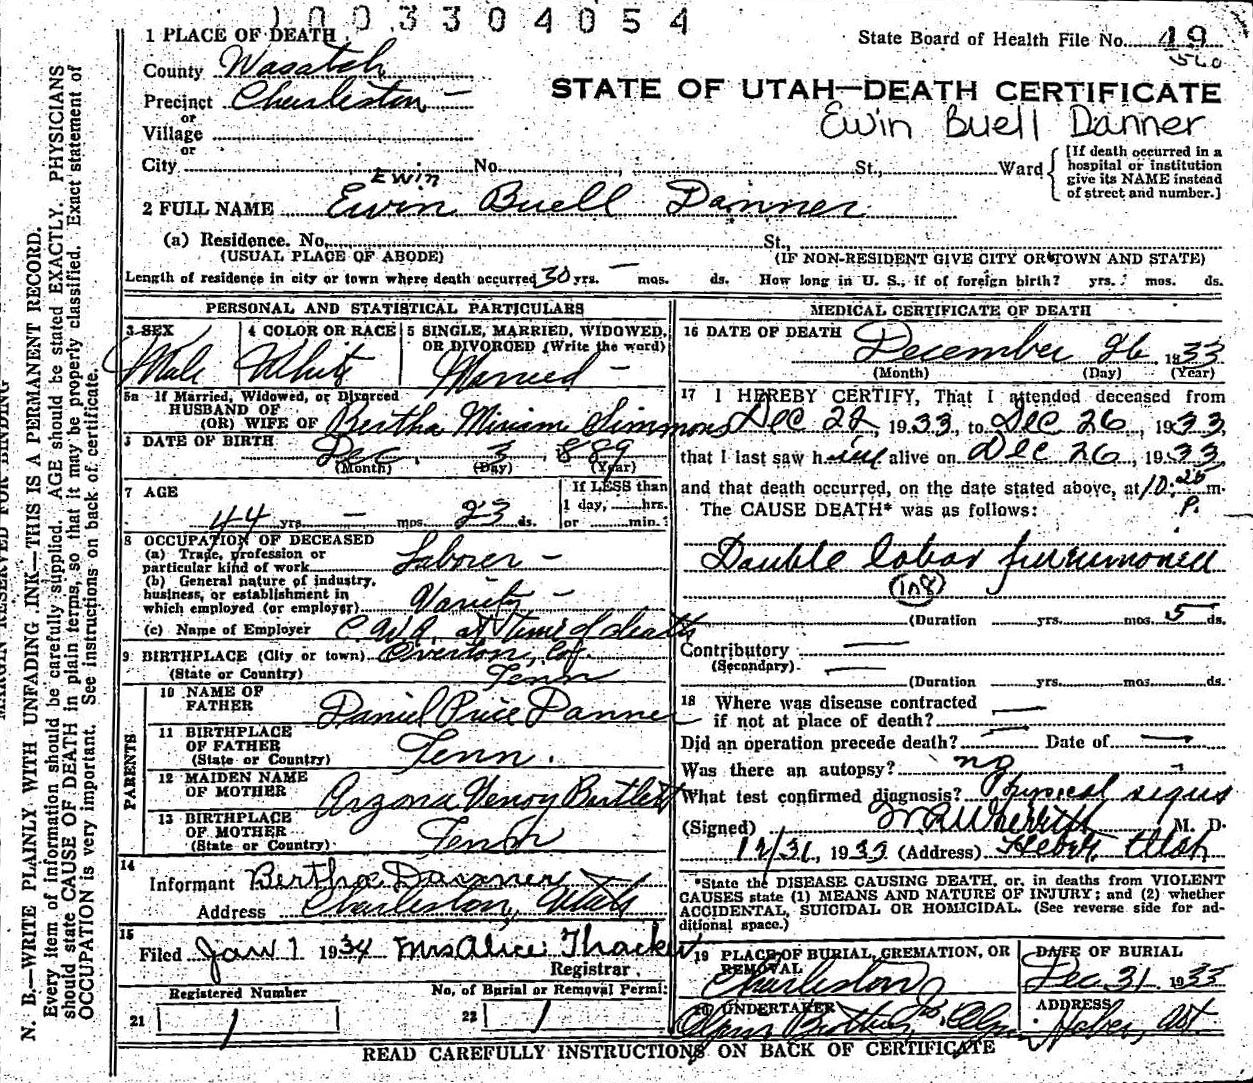 1003304054
1 PLACE OF DEATH
State Board of Health File No. 49
560
County Wasatch
Precinct Charleston -
or
Village
or
City No. St., Ward
STATE OF UTAH—DEATH CERTIFICATE
Ewin Buell Danner
[If death occurred in a
hospital or institution
give its NAME instead
of street and number.]
Ewin
2 FULL NAME Ewin Buell Danner
(a) Residence. No. St.,
(USUAL PLACE OF ABODE) (IF NON-RESIDENT GIVE CITY OR TOWN AND STATE)
Length of residence in city or town where death occurred 30 yrs. — mos. ds. How long in U. S., if of foreign birth? yrs. mos. ds.
PERSONAL AND STATISTICAL PARTICULARS
3 SEX 4 COLOR OR RACE 5 SINGLE, MARRIED, WIDOWED,
OR DIVORCED (Write the word)
Male White Married -
5a If Married, Widowed, or Divorced
HUSBAND OF
(OR) WIFE OF Bertha Miriam Simmons
DATE OF BIRTH Dec. 3, 889
(Month) (Day) (Year)
7 AGE If LESS than
1 day, hrs.
44 yrs. — mos. 23 ds. or min.?
8 OCCUPATION OF DECEASED
(a) Trade, profession or
particular kind of work Laborer -
(b) General nature of industry,
business, or establishment in
which employed (or employer) Variety -
(c) Name of Employer C.W.A. at time of death
9 BIRTHPLACE (City or town) Overton, Co.
(State or Country) Tenn
PARENTS
10 NAME OF
FATHER Daniel Price Danner
11 BIRTHPLACE
OF FATHER
(State or Country) Tenn.
12 MAIDEN NAME
OF MOTHER Arzona Venoy Bartlett
13 BIRTHPLACE
OF MOTHER
(State or Country) Tenn
14
Informant Bertha Danner
Address Charleston, Utah
15
Filed Jan 1 1934 Mrs Alice Thacker
Registrar.
Registered Number No. of Burial or Removal Permit
21 1 22 1
MEDICAL CERTIFICATE OF DEATH
16 DATE OF DEATH December 26 1933
(Month) (Day) (Year)
17 I HEREBY CERTIFY, That I attended deceased from
Dec 22, 1933, to Dec 26, 1933,
that I last saw him alive on Dec 26, 1933,
and that death occurred, on the date stated above, at 10:20 m.
P.
The CAUSE DEATH* was as follows:
Double lobar pneumonea
108
(Duration yrs. mos. 5 ds.
Contributory —
(Secondary) —
(Duration yrs. mos. ds.
18 Where was disease contracted
if not at place of death? —
Did an operation precede death? — Date of —
Was there an autopsy? no -
What test confirmed diagnosis? Physical signs
(Signed) M. D.
12/31, 1933 (Address) Heber Utah
*State the DISEASE CAUSING DEATH, or, in deaths from VIOLENT
CAUSES state (1) MEANS AND NATURE OF INJURY; and (2) whether
ACCIDENTAL, SUICIDAL OR HOMICIDAL. (See reverse side for ad-
ditional space.)
19 PLACE OF BURIAL, CREMATION, OR
REMOVAL
Charleston
DATE OF BURIAL
Dec. 31 1933
20 UNDERTAKER
Olpin Brothers
ADDRESS
Heber, Ut.
READ CAREFULLY INSTRUCTIONS ON BACK OF CERTIFICATE
MARGIN RESERVED FOR BINDING
N. B.—WRITE PLAINLY WITH UNFADING INK—THIS IS A PERMANENT RECORD.
Every item of information should be carefully supplied. AGE should be stated EXACTLY. PHYSICIANS
should state CAUSE OF DEATH in plain terms, so that it may be properly classified. Exact statement of
OCCUPATION is very important. See instructions on back of certificate.